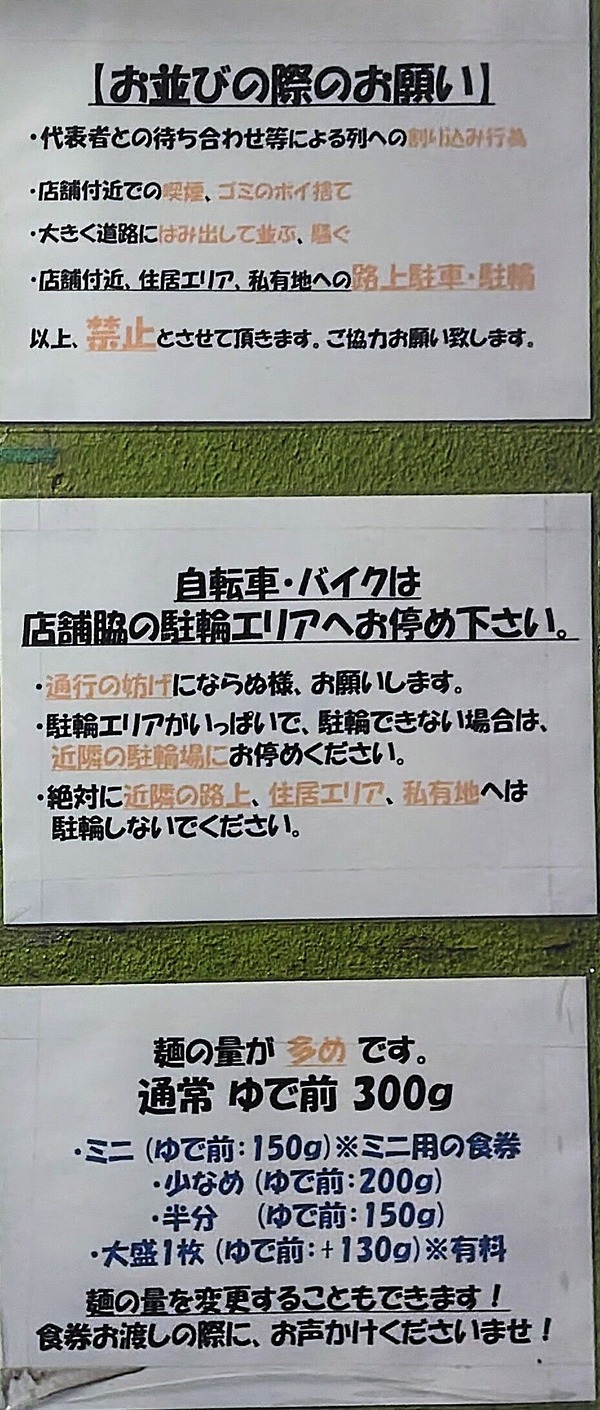 【お並びの際のお願い】
・代表者との待ち合わせ等による列への割り込み行為
・店舗付近での喫煙、ゴミのポイ捨て
・大きく道路にはみ出して並ぶ、騒ぐ
・店舗付近、住居エリア、私有地への路上駐車・駐輪
以上、禁止とさせて頂きます。ご協力お願い致します。
自転車・バイクは
店舗脇の駐輪エリアへお停め下さい。
・通行の妨げにならぬ様、お願いします。
・駐輪エリアがいっぱいで、駐輪できない場合は、
近隣の駐輪場にお停めください。
・絶対に近隣の路上、住居エリア、私有地へは
駐輪しないでください。
麺の量が 多め です。
通常 ゆで前 300g
・ミニ (ゆで前：150g)※ミニ用の食券
・少なめ (ゆで前：200g)
・半分 (ゆで前：150g)
・大盛1枚 (ゆで前：+130g)※有料
麺の量を変更することもできます！
食券お渡しの際に、お声かけくださいませ！